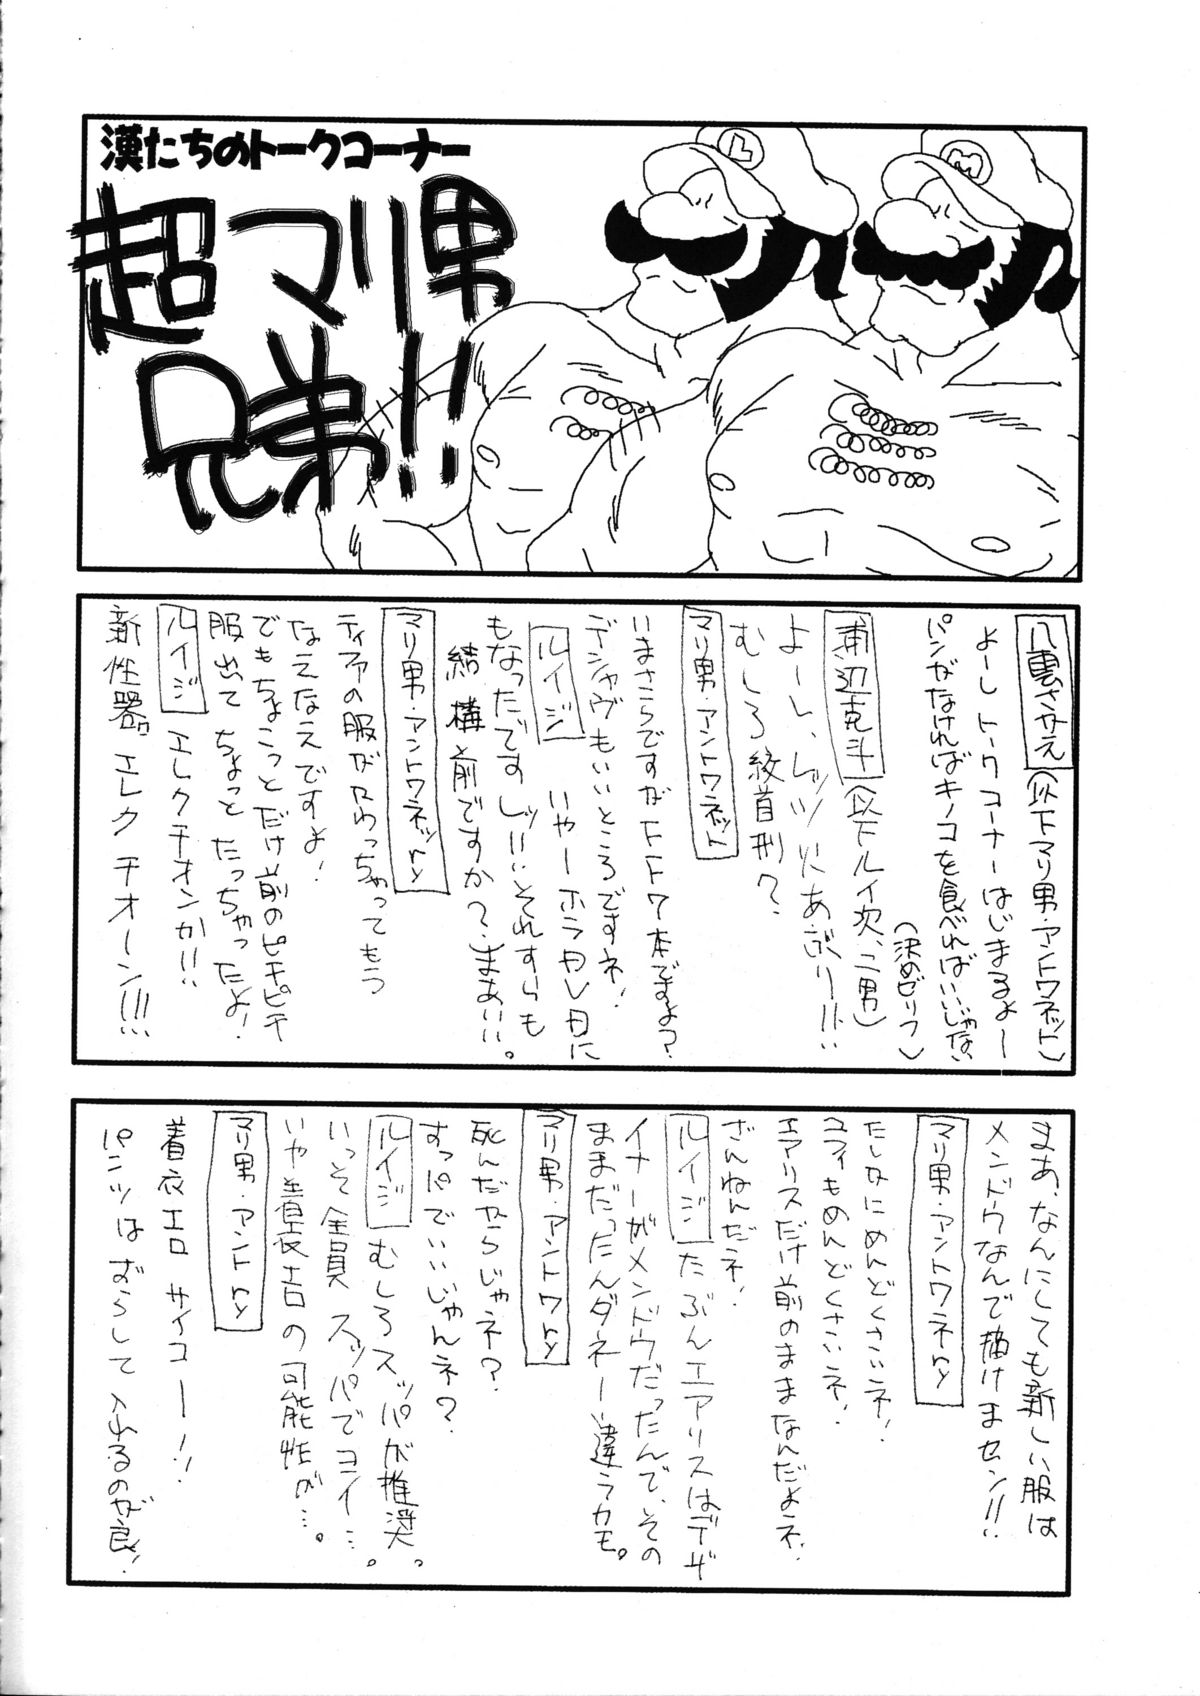 漢たちのトークコーナー
超マリ男
兄弟!!
L
M
八雲さかえ（以下マリ男・アントワネット）
よーし トークコーナーはじまるよー
パンがなければキノコを食べればいいじゃない
（決めゼリフ）
浦辺克斗（以下ルイ次、二男）
よーし、レッツ火あぶりー!!
むしろ絞首刑？
マリ男・アントワネット
いまさらですがFF7本ですよ？
デジャヴもいいところですネ！
ルイジ いやーホラ DVD に
もなったですしッ!!それすらも
結構と前ですか？まあいい。
マリ男・アントワネッry
ティファの服がかわっちゃってもう
なえなえですよ！
でもちょこっとだけ前のピチピチ
服出てちょっとたっちゃったよ！
ルイジ エレクチオンか!!!
新性器。エレクチオーン!!!
まあ、なんにしても新しい服は
メンドウなんで描けませン!!
マリ男・アントワネry
たしかにめんどくさいネ！
ユフィもめんどくさいネ！
エアリスだけ前のままなんだよネ！
ざんねんだネ！
ルイジ たぶんエアリスはデザ
イナーがメンドウだったんで、その
ままだったんダネー 違うカモ。
マリ男・アントワry
死んだからじゃネ？
すっパでいいじゃんネ？
ルイジ むしろスッパが推奨。
いっそ全員スッパでコイ…。
いや着衣エロの可能性が…。
マリ男・アントry
着衣エロ サイコー！！
パンツはずらして入れるのが良！